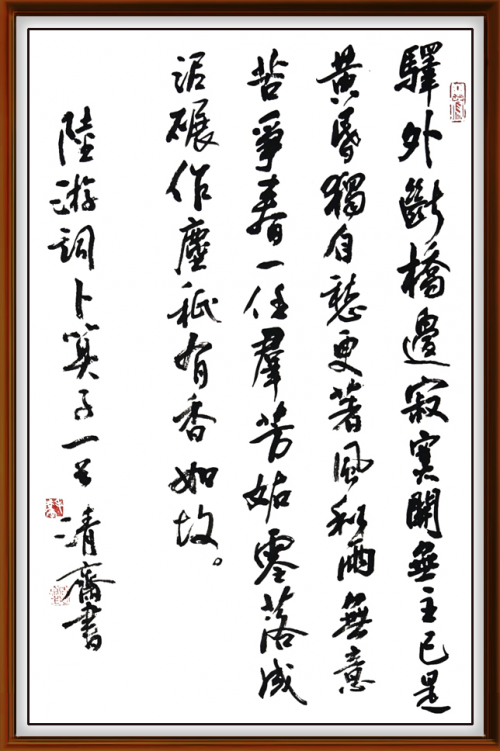 驛外斷橋邊寂寞開無主已是
黄昏獨自愁更著風和雨無意
苦爭春一任羣芳妬零落成
泥碾作塵祇有香如故。
陸游詞卜算子一首 清齋書